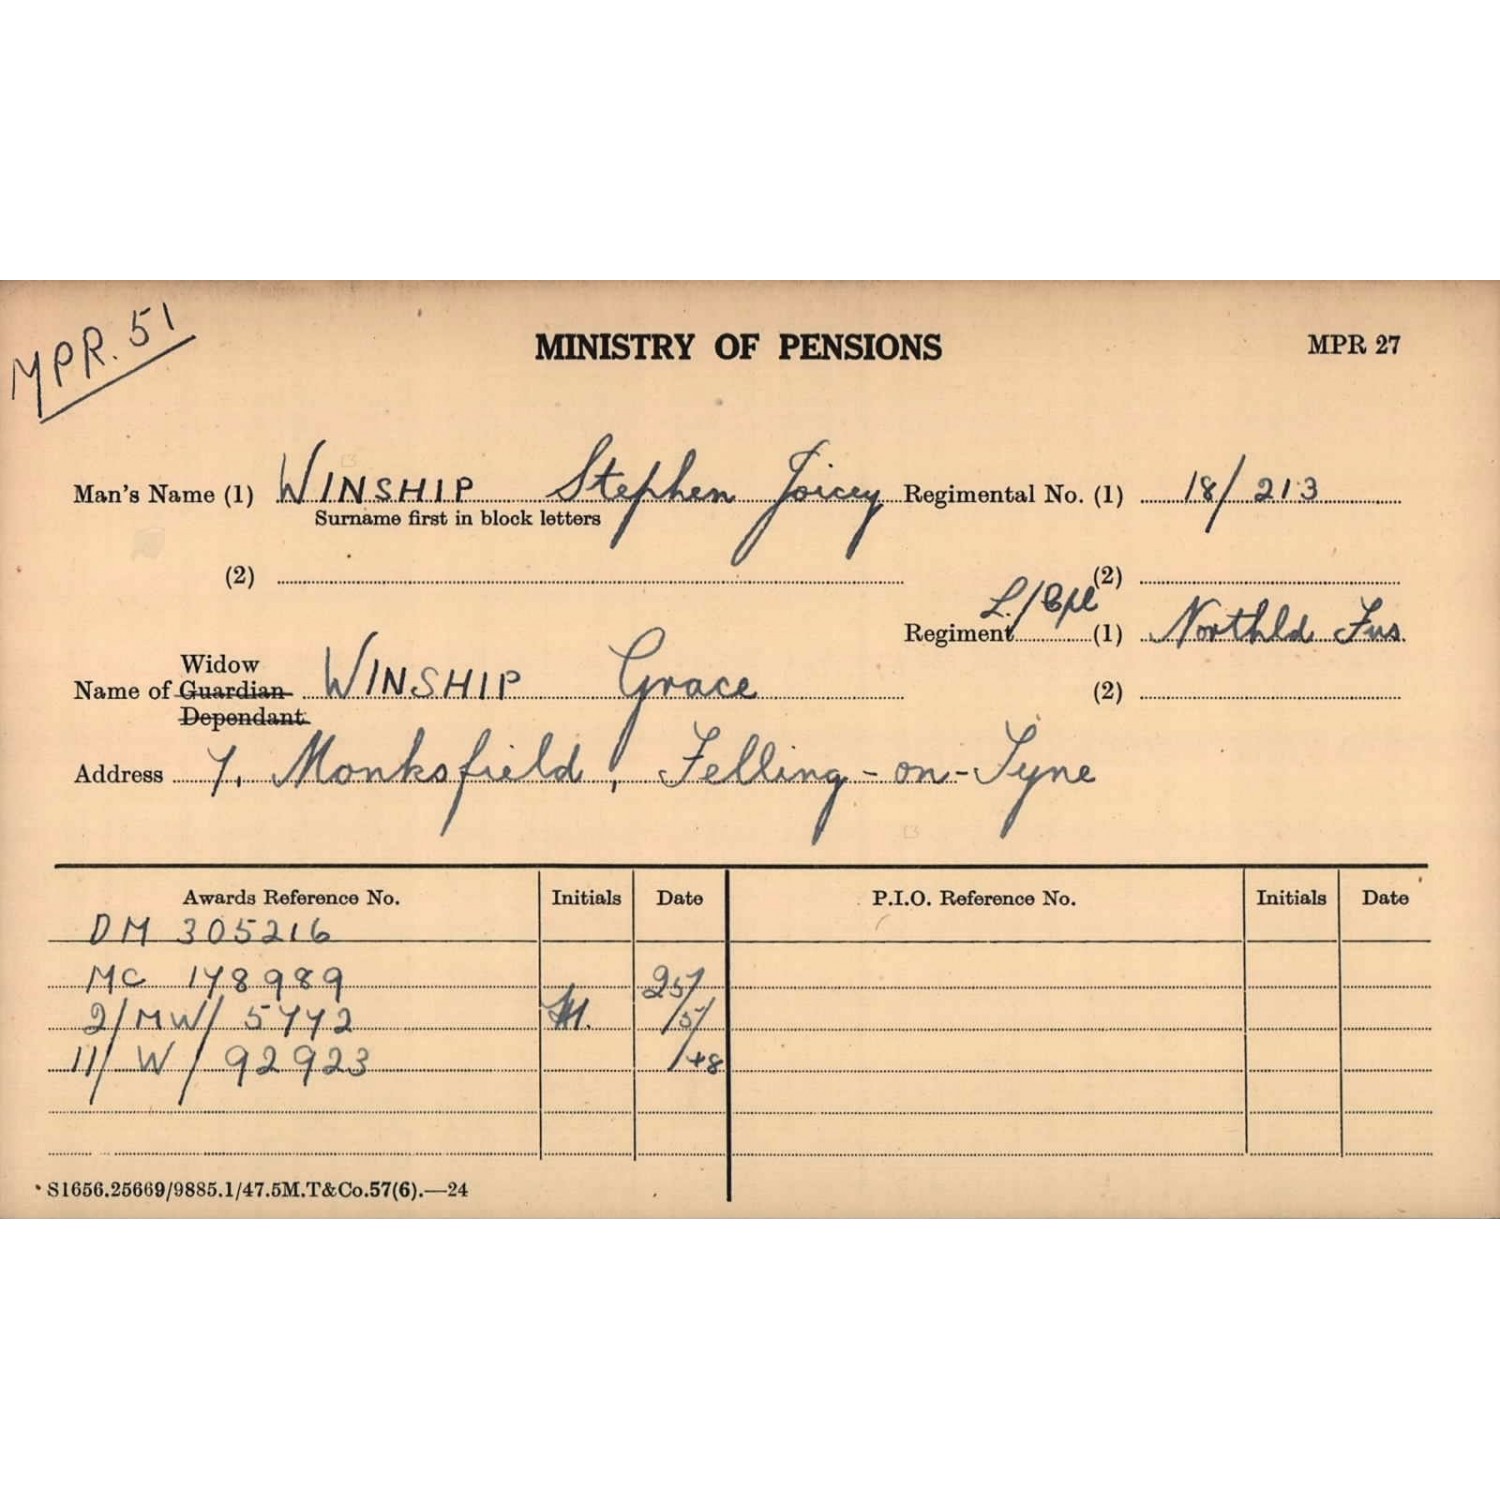 MPR. 51
MINISTRY OF PENSIONS
MPR 27
Man's Name (1) WINSHIP Stephen Joicey Regimental No. (1) 18/213
Surname first in block letters
(2) (2)
L/Cpl
Regiment (1) Northld Fus.
Widow
Name of Guardian WINSHIP Grace (2)
Dependant
Address 7, Monksfield, Felling-on-Tyne
Awards Reference No. Initials Date P.I.O. Reference No. Initials Date
DM 305216
MC 178989 25/
2/MW/5772 /5/
11/W/92923 /48
S1656.25669/9885.1/47.5M.T&Co.57(6).—24